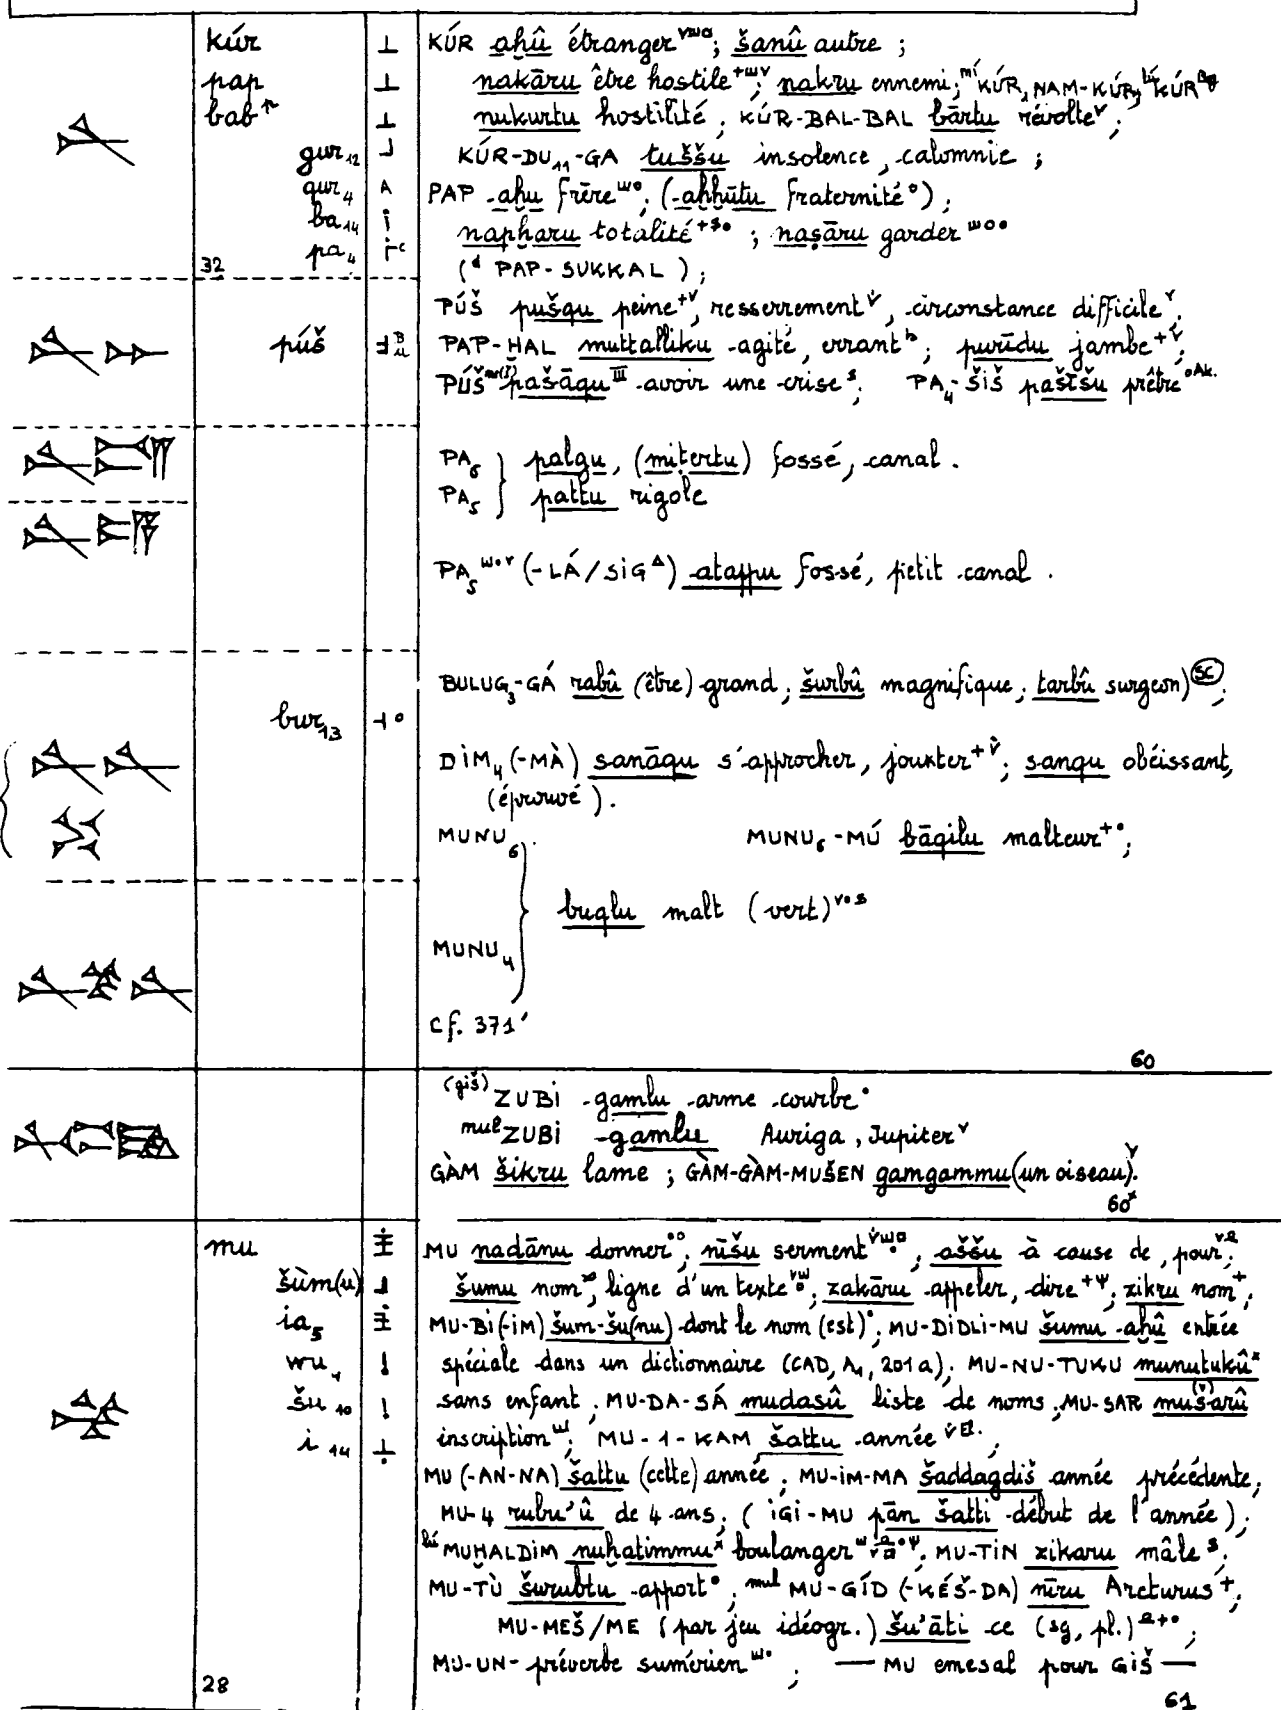 kúr ⊥ KÚR aḫû étranger; šanû autre ;
pap ⊥ nakāru être hostile; nakru ennemi; KÚR, NAM-KÚR, lú KÚR
bab ⊥ nukurtu hostilité ; KÚR-BAL-BAL bārtu révolte ;
gur₁₂ KÚR-DU₁₁-GA tuššu insolence, calomnie ;
qur₄ PAP aḫu frère ; (aḫḫūtu fraternité) ;
ba₁₄ napḫaru totalité ; naṣāru garder
pa₄ (ᵈ PAP-SUKKAL) ;
32
PÚŠ pušqu peine, resserrement, circonstance difficile
púš PAP-ḪAL muttalliku agité, errant ; purīdu jambe ;
PÚŠ pašāqu III avoir une crise ; PA₄-ŠIŠ pašīšu prêtre oAk.
PA₆ } palgu, (miṭertu) fossé, canal .
PA₅ } pattu rigole
PA₅ (-LÁ/SIG) atappu fossé, petit canal .
BULUG₃-GÁ rabû (être) grand ; šurbû magnifique ; tarbû surgeon) SC ;
bur₁₃
DIM₄ (-MÀ) sanāqu s'approcher, jouxter ; sanqu obéissant,
(éprouvé).
MUNU₆ MUNU₆-MÚ bāqilu malteur ;
buqlu malt (vert)
MUNU₄
Cf. 371'
60
(giš) ZUBI gamlu arme courbe
mul ZUBI gamlu Auriga, Jupiter
GÀM šikru lame ; GÀM-GÀM-MUŠEN gamgammu (un oiseau).
60*
mu MU nadānu donner ; nīšu serment ; aššu à cause de, pour ;
šùm(u) šumu nom, ligne d'un texte ; zakāru appeler, dire ; zikru nom ;
ia₅ MU-BI(-IM) šum-šu(nu) dont le nom (est) ; MU-DIDLI-MU šumu aḫû entrée
wu₄ spéciale dans un dictionnaire (CAD, A₁, 201a) ; MU-NU-TUKU munutukû
šu₁₀ sans enfant ; MU-DA-SÁ mudasû liste de noms ; MU-SAR mušarû
i₁₄ inscription ; MU-1-KAM šattu année ;
MU (-AN-NA) šattu (cette) année ; MU-IM-MA šaddagdiš année précédente ;
MU-4 rubu'û de 4 ans ; ( IGI-MU pān šatti début de l'année) ;
lú MUḪALDIM nuḫatimmu boulanger ; MU-TIN zikaru mâle ;
MU-TÙ šurubtu apport ; mul MU-GÍD (-KÉŠ-DA) nīru Arcturus ;
MU-MEŠ/ME (par jeu idéogr.) šu'āti ce (sg, pl.) ;
MU-UN- préverbe sumérien ; — MU emesal pour GIŠ —
28
61